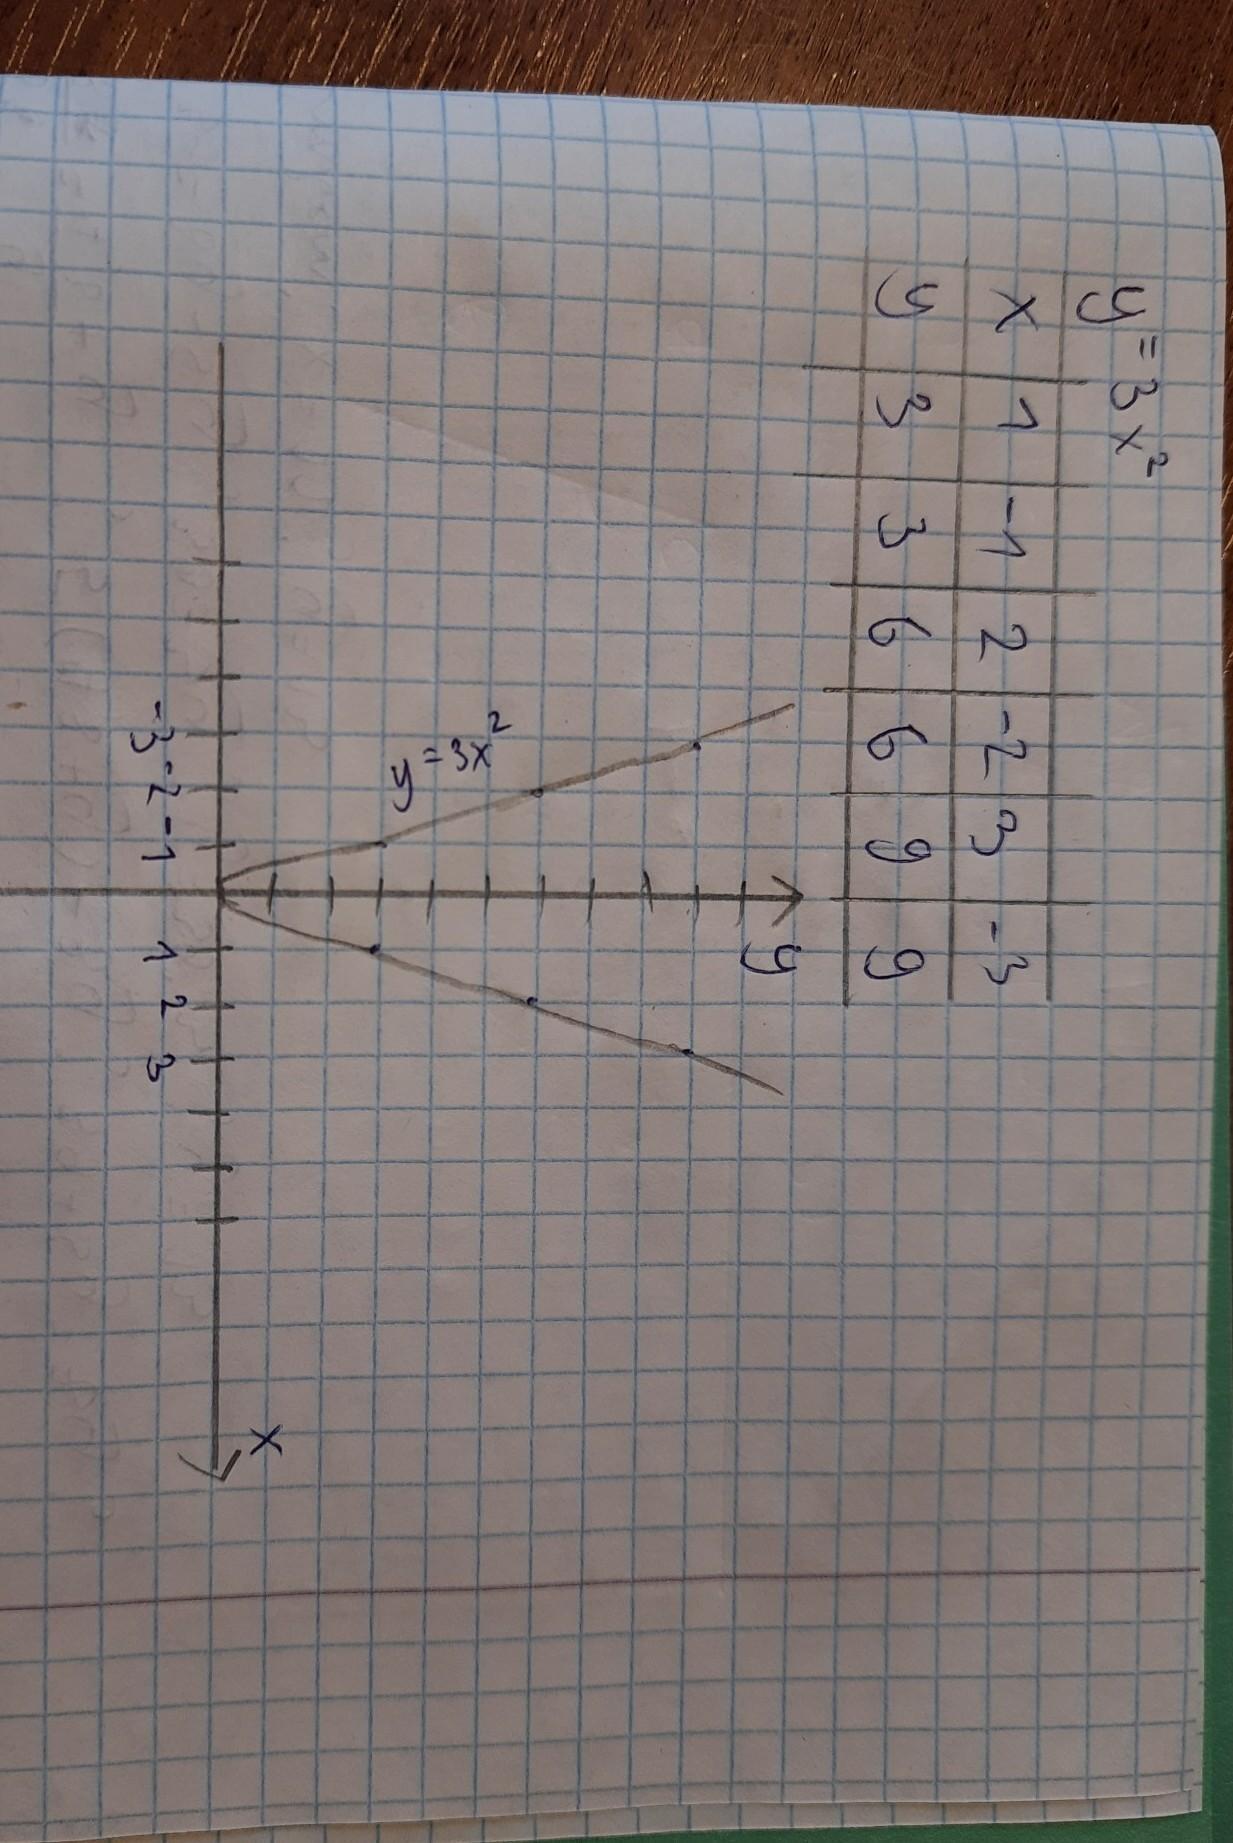 y = 3x²
x 1 -1 2 -2 3 -3
y 3 3 6 6 9 9
y
y = 3x²
x
-3 -2 -1 1 2 3